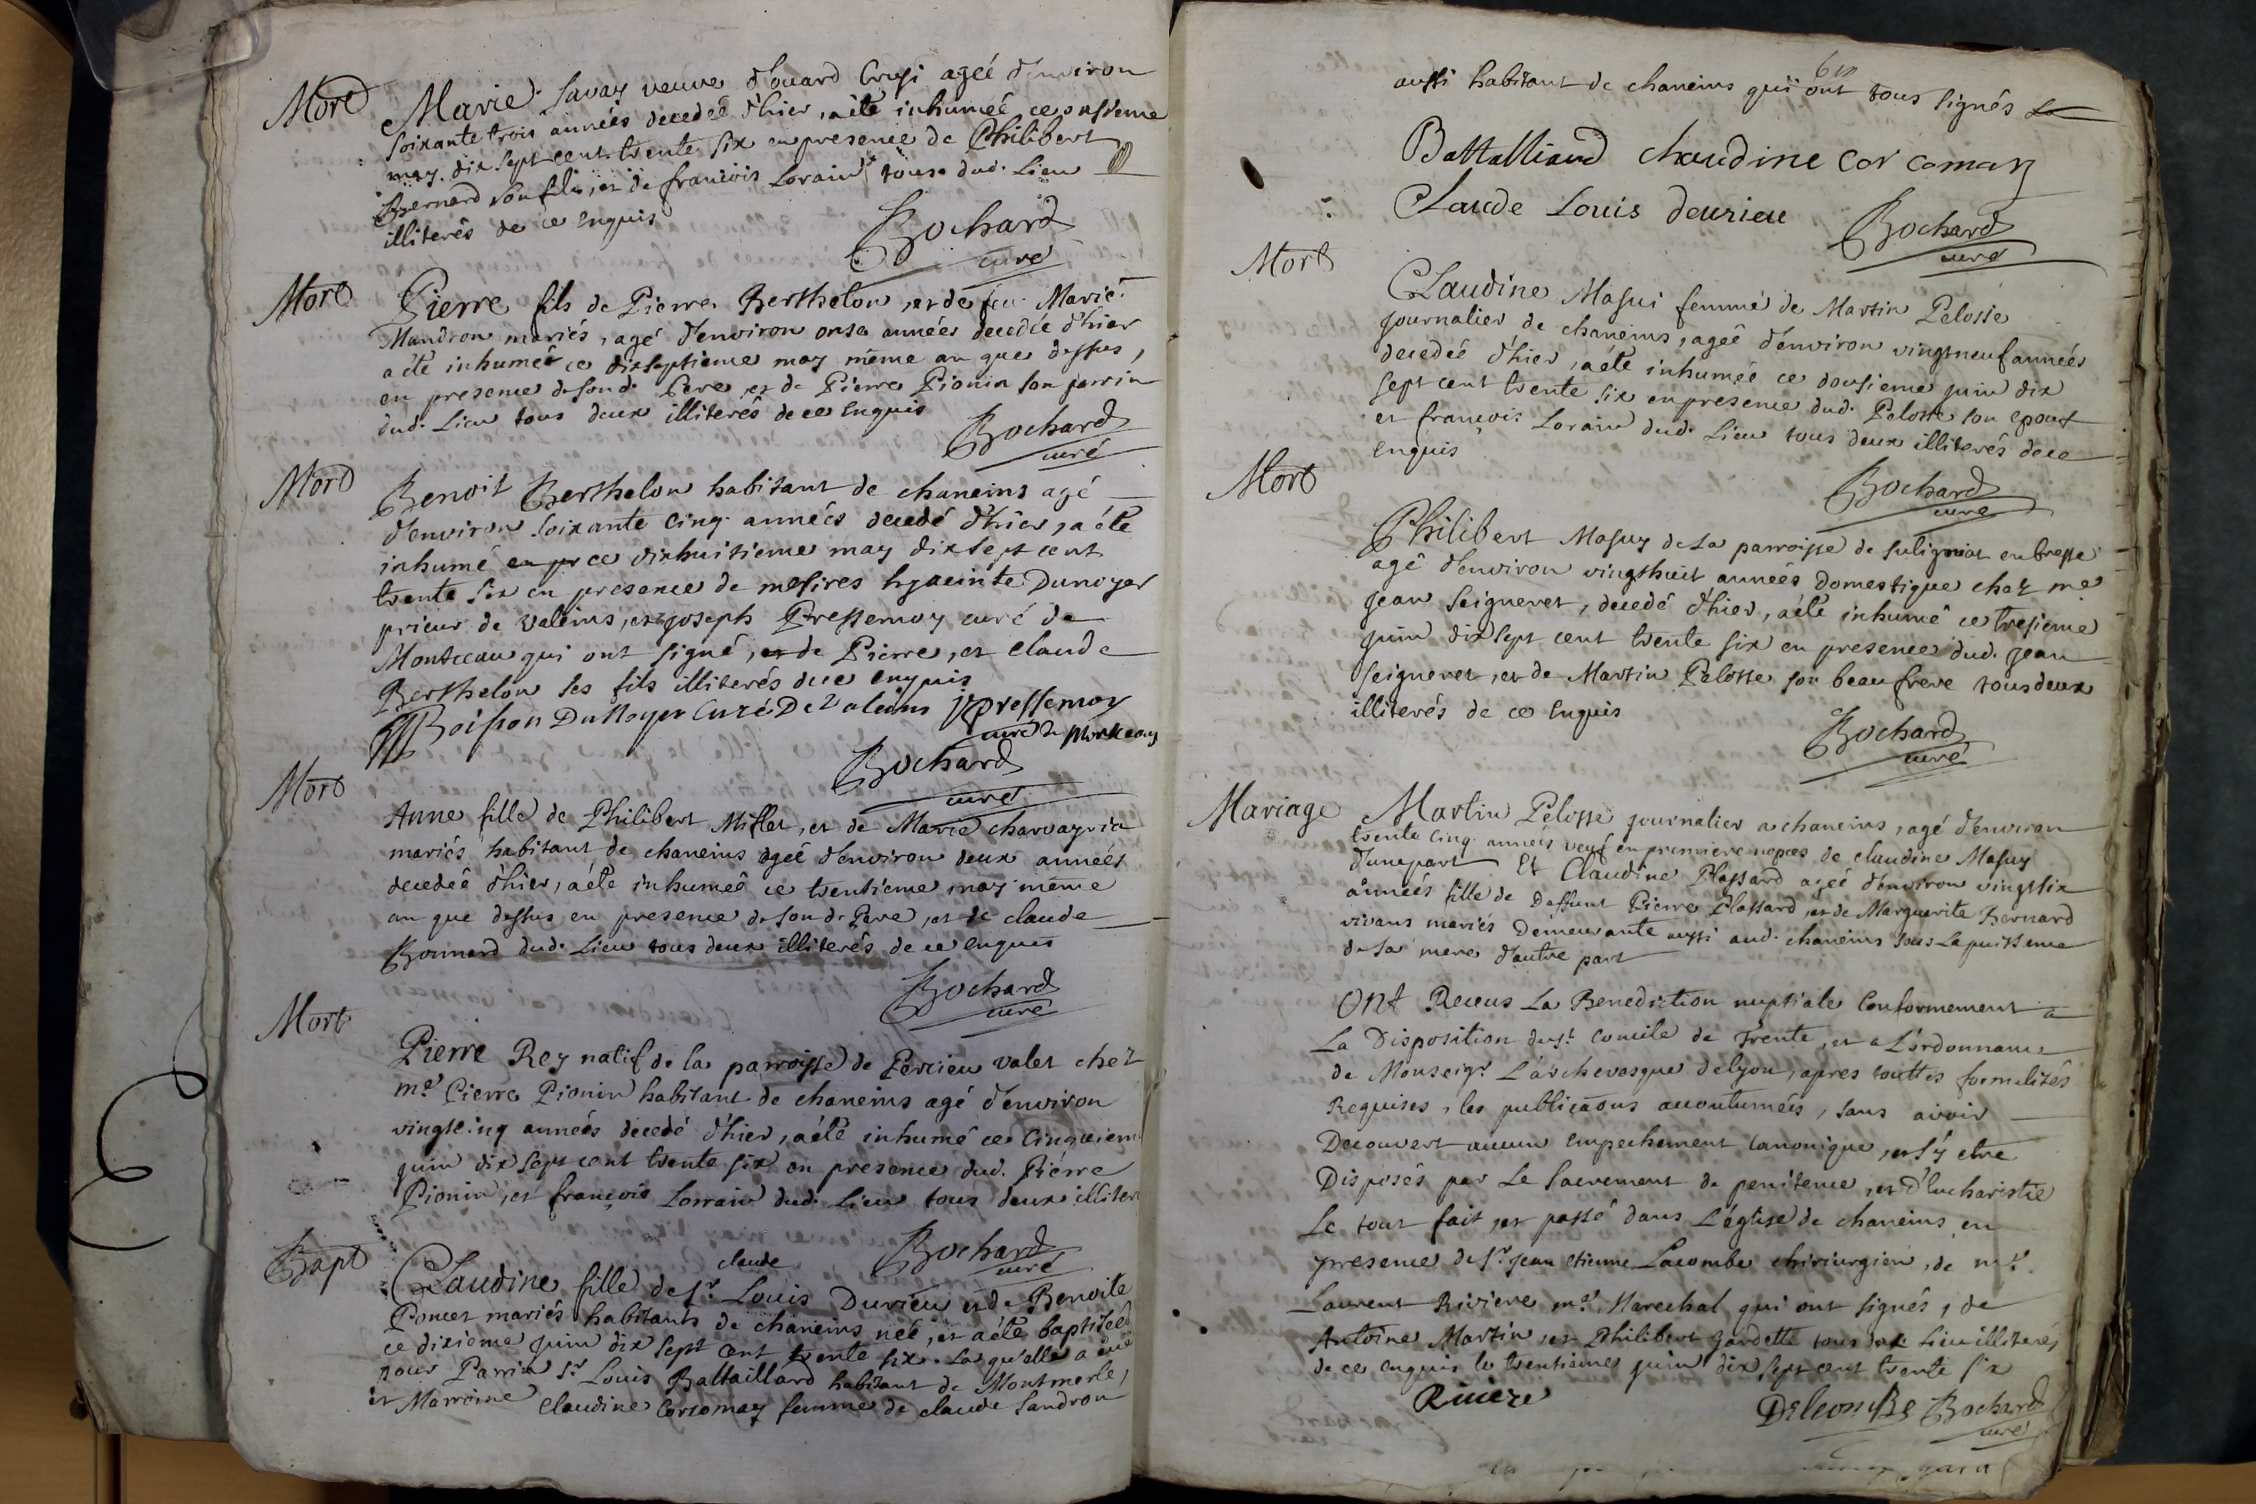 Mort
Marie Savay veuve d'ouard Crusi ageé d'environ
soixante trois années decedeé d'hier, a été inhumeé ce
may dix sept cent trente six en presence de Philibert
Bernard son fils, et de francois Lorain tous dud. Lieu
illiterés de ce enquis
Bochard
curé
Mort
Pierre fils de Pierre Berthelon, et de feu Marie
Mandron mariés, agé d'environ onse années decedée d'hier
a été inhumée ce dixseptieme may même an que dessus,
en presence de sond. Pere, et de Pierre Pionin son parrin
dud. Lieu tous deux illiterés de ce enquis
Bochard
curé
Mort
Benoit Berthelon habitant de chaneins agé
d'environ soixante cinq années decedé d'hier, a été
inhumé en pr ce dixhuitieme may dix sept cent
trente six en presence de mesires hyacinte Dunoyer
prieur de valeins, et joseph Pressemoy curé de
Montceau qui ont signé, et de Pierre, et claude
Berthelon ses fils illiterés de ce enquis
Boisson DuNoyer Curé De Valeins JPressemoy
curé de Montceau
Bochard
curé
Mort
Anne fille de Philibert Millet, et de Marie charvayria
mariés habitant de chaneins ageé d'environ deux années
decedeé d'hier, a été inhumeé ce trentieme may même
an que dessus en presence de sond. Pere, et de claude
Bonnard dud. Lieu tous deux illiterés de ce enquis
Bochard
curé
Mort
Pierre Rey natif de la parroisse de Percieu valet chez
me. Pierre Pionin habitant de chaneins agé d'environ
vingtcinq années decedé d'hier, a été inhumé ce Cinquiem
juin dix sept cent trente six en presence dud. Pierre
Pionin, et françois Lorrain dud. Lieu tous deux illiter
Bochard
curé
Bapt
claude
Claudine fille de sr. Louis Durieu et de Benoite
Poncet mariés habitants de chaneins neé, et a été baptiseé
ce dixieme juin dix sept cent trente six. La qu'elle a eue
pour Parrin sr. Louis Battaillard habitant de Montmerle,
et Marroine Claudine Corcomay femme de claude Sandron
60
aussi habitant de chaneins qui ont tous signés
Battalliard chaudine cor comay
Claude Louis deurieu
Bochard
curé
Mort
Claudine Masui femme de Martin Pelosse
journalier de chaneins, ageé d'environ vingtneuf années
decedeé d'hier, a été inhumeé ce dousieme juin dix
sept cent trente six en presence dud. Pelosse son epoux
et francois Lorain dud. Lieu tous deux illiterés de ce
enquis
Bochard
curé
Mort
Philibert Masuy de la parroisse de sulignat en bresse
agé d'environ vingthuit années Domestique chez me
jean seigneret, decedé d'hier, a été inhumé ce tresieme
juin dix sept cent trente six en presence dud. jean
seigneret, et de Martin Pelosse son beau frere tous deux
illiterés de ce enquis
Bochard
curé
Mariage
Martin Pelosse journalier a chaneins, agé d'environ
trente cinq années veuf en premiere nopces de claudine Masuy
d'une part Et Claudine Plassard ageé d'environ vingtsix
années fille de Deffunt Pierre Plassard, et de Marguerite Bernard
vivans mariés Demeurante aussi aud. chaneins sous la puissence
de sa mere d'autre part
Ont Receus La Benediction nuptiale Conformement a
La Disposition du st. concile de Trente, et a L'ordonnance
de Monseigr. L'archevesque de lyon, apres toutes formalités
Requises, les publications accoutumeés, sans avoir
Decouvert aucun empechement canonique, et s'y etre
Disposés par Le sacrement de penitence, et d'Eucharistie
Le tout fait, et passé dans L'église de chaneins, en
presence de sr. jean etienne Lacombe chirurgien, de mr.
Laurent Riviere me. Marechal qui ont signés, de
Antoine Martin, et Philibert Gardette tous dud. Lieu illiterés
de ce enquis le trentieme juin dix sept cent trente six
Riviere
Delacombe
Bochard
curé